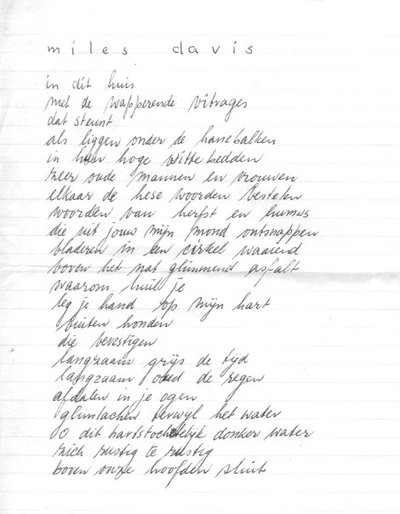 miles davis
in dit huis
met de wapperende vitrages
dat steunt
als liggen onder de hanebalken
in hun hoge witte bedden
zeer oude mannen en vrouwen
elkaar de hese woorden
woorden van herfst en humus
die uit jouw mijn mond ontsnappen
bladeren in een cirkel waaiend
boven het nat glimmend asfalt
waarom huil je
leg je hand op mijn hart
buiten honden
die bevestigen
langzaam grijs de tijd
langzaam oud de regen
afdalen in je ogen
glimlachen terwijl het water
o dit hartstochtelijk donker water
zich rustig te rustig
boven onze hoofden sluit